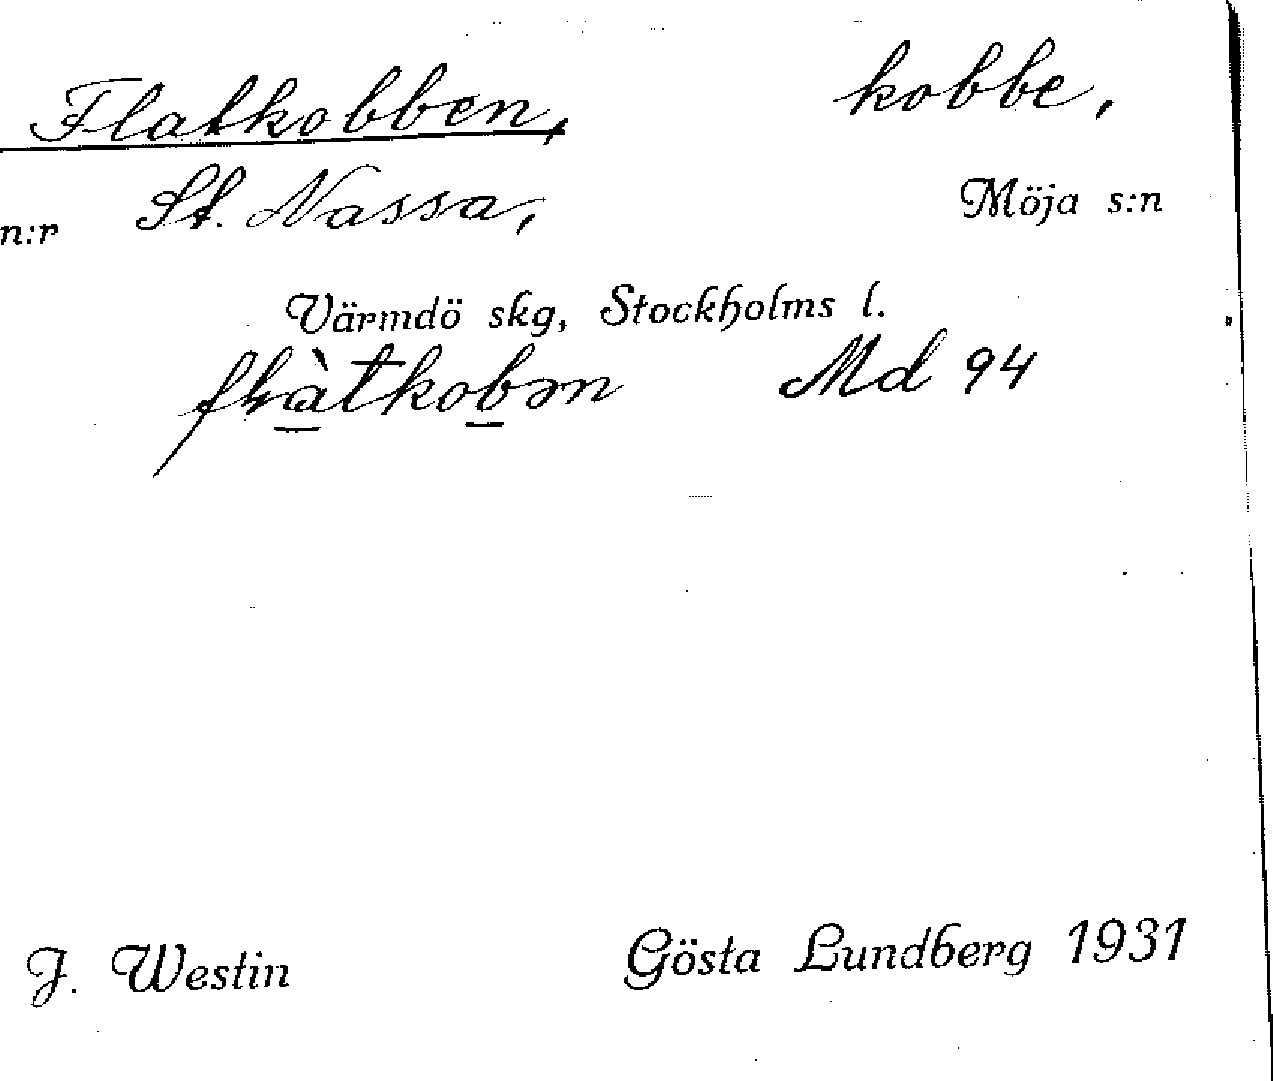 Flatkobben, kobbe,
n:r St. Nassa, Möja s:n
Värmdö skg, Stockholms l.
Md 94
J. Westin Gösta Lundberg 1931